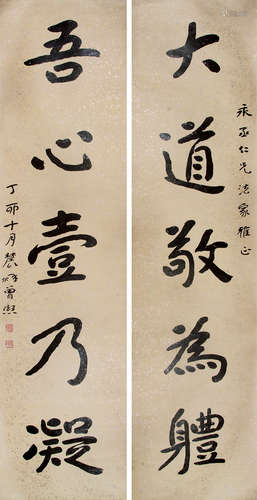 承丞仁兄法家雅正
大道敬為體
吾心壹乃凝
丁卯十月農髯曾熙